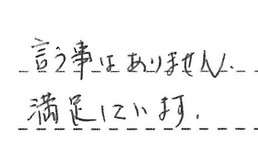 言う事はありません.
満足しています.